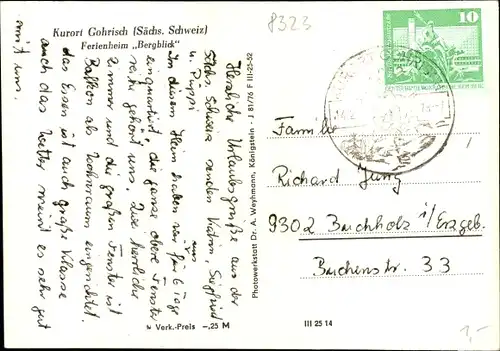 8323
Kurort Gohrisch (Sächs. Schweiz)
Ferienheim „Bergblick"
Herzliche Urlaubsgrüße aus der
Sächs. Schweiz senden Katrin, Siegfried
u. Puppi
In diesem Heim haben wir für 6 Tage
einquartiert, die ganze obere Fenster
reihe gehört uns. Zwei herrliche
Zimmer und die großen Fenster ist
Balkon als Wohnraum eingerichtet.
das Essen ist auch große Klasse
auch das Wetter meint es sehr gut
mit uns.
» Verk.-Preis -,25 M
Photowerkstatt Dr. A. Weyhmann, Königstein - J 81/76 F III-25-52
10
Familie
Richard Jung
9302 Buchholz i/Erzgeb.
Buchenstr. 33
III 25 14
1,-